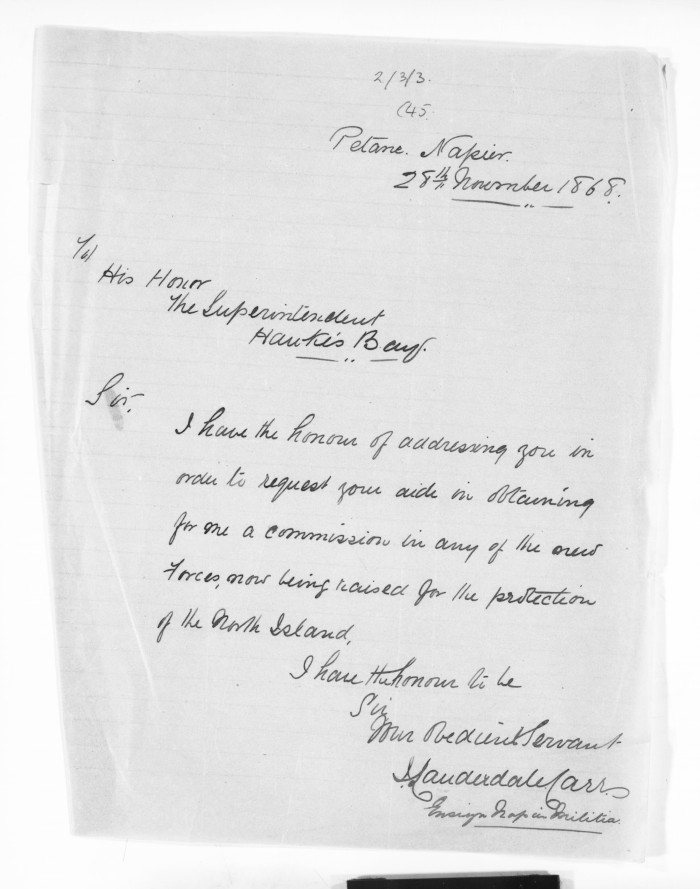 2/3/3.
C45.
Petane. Napier.
28th November 1868.
To/
His Honor
The Superintendent
Hawke's Bay.
Sir,
I have the honour of addressing you in
order to request your aide in obtaining
for me a commission in any of the new
Forces, now being raised for the protection
of the North Island,
I have the honour to be
Sir
Your Obedient Servant
J. Lauderdale Carr
Ensign Napier Militia.